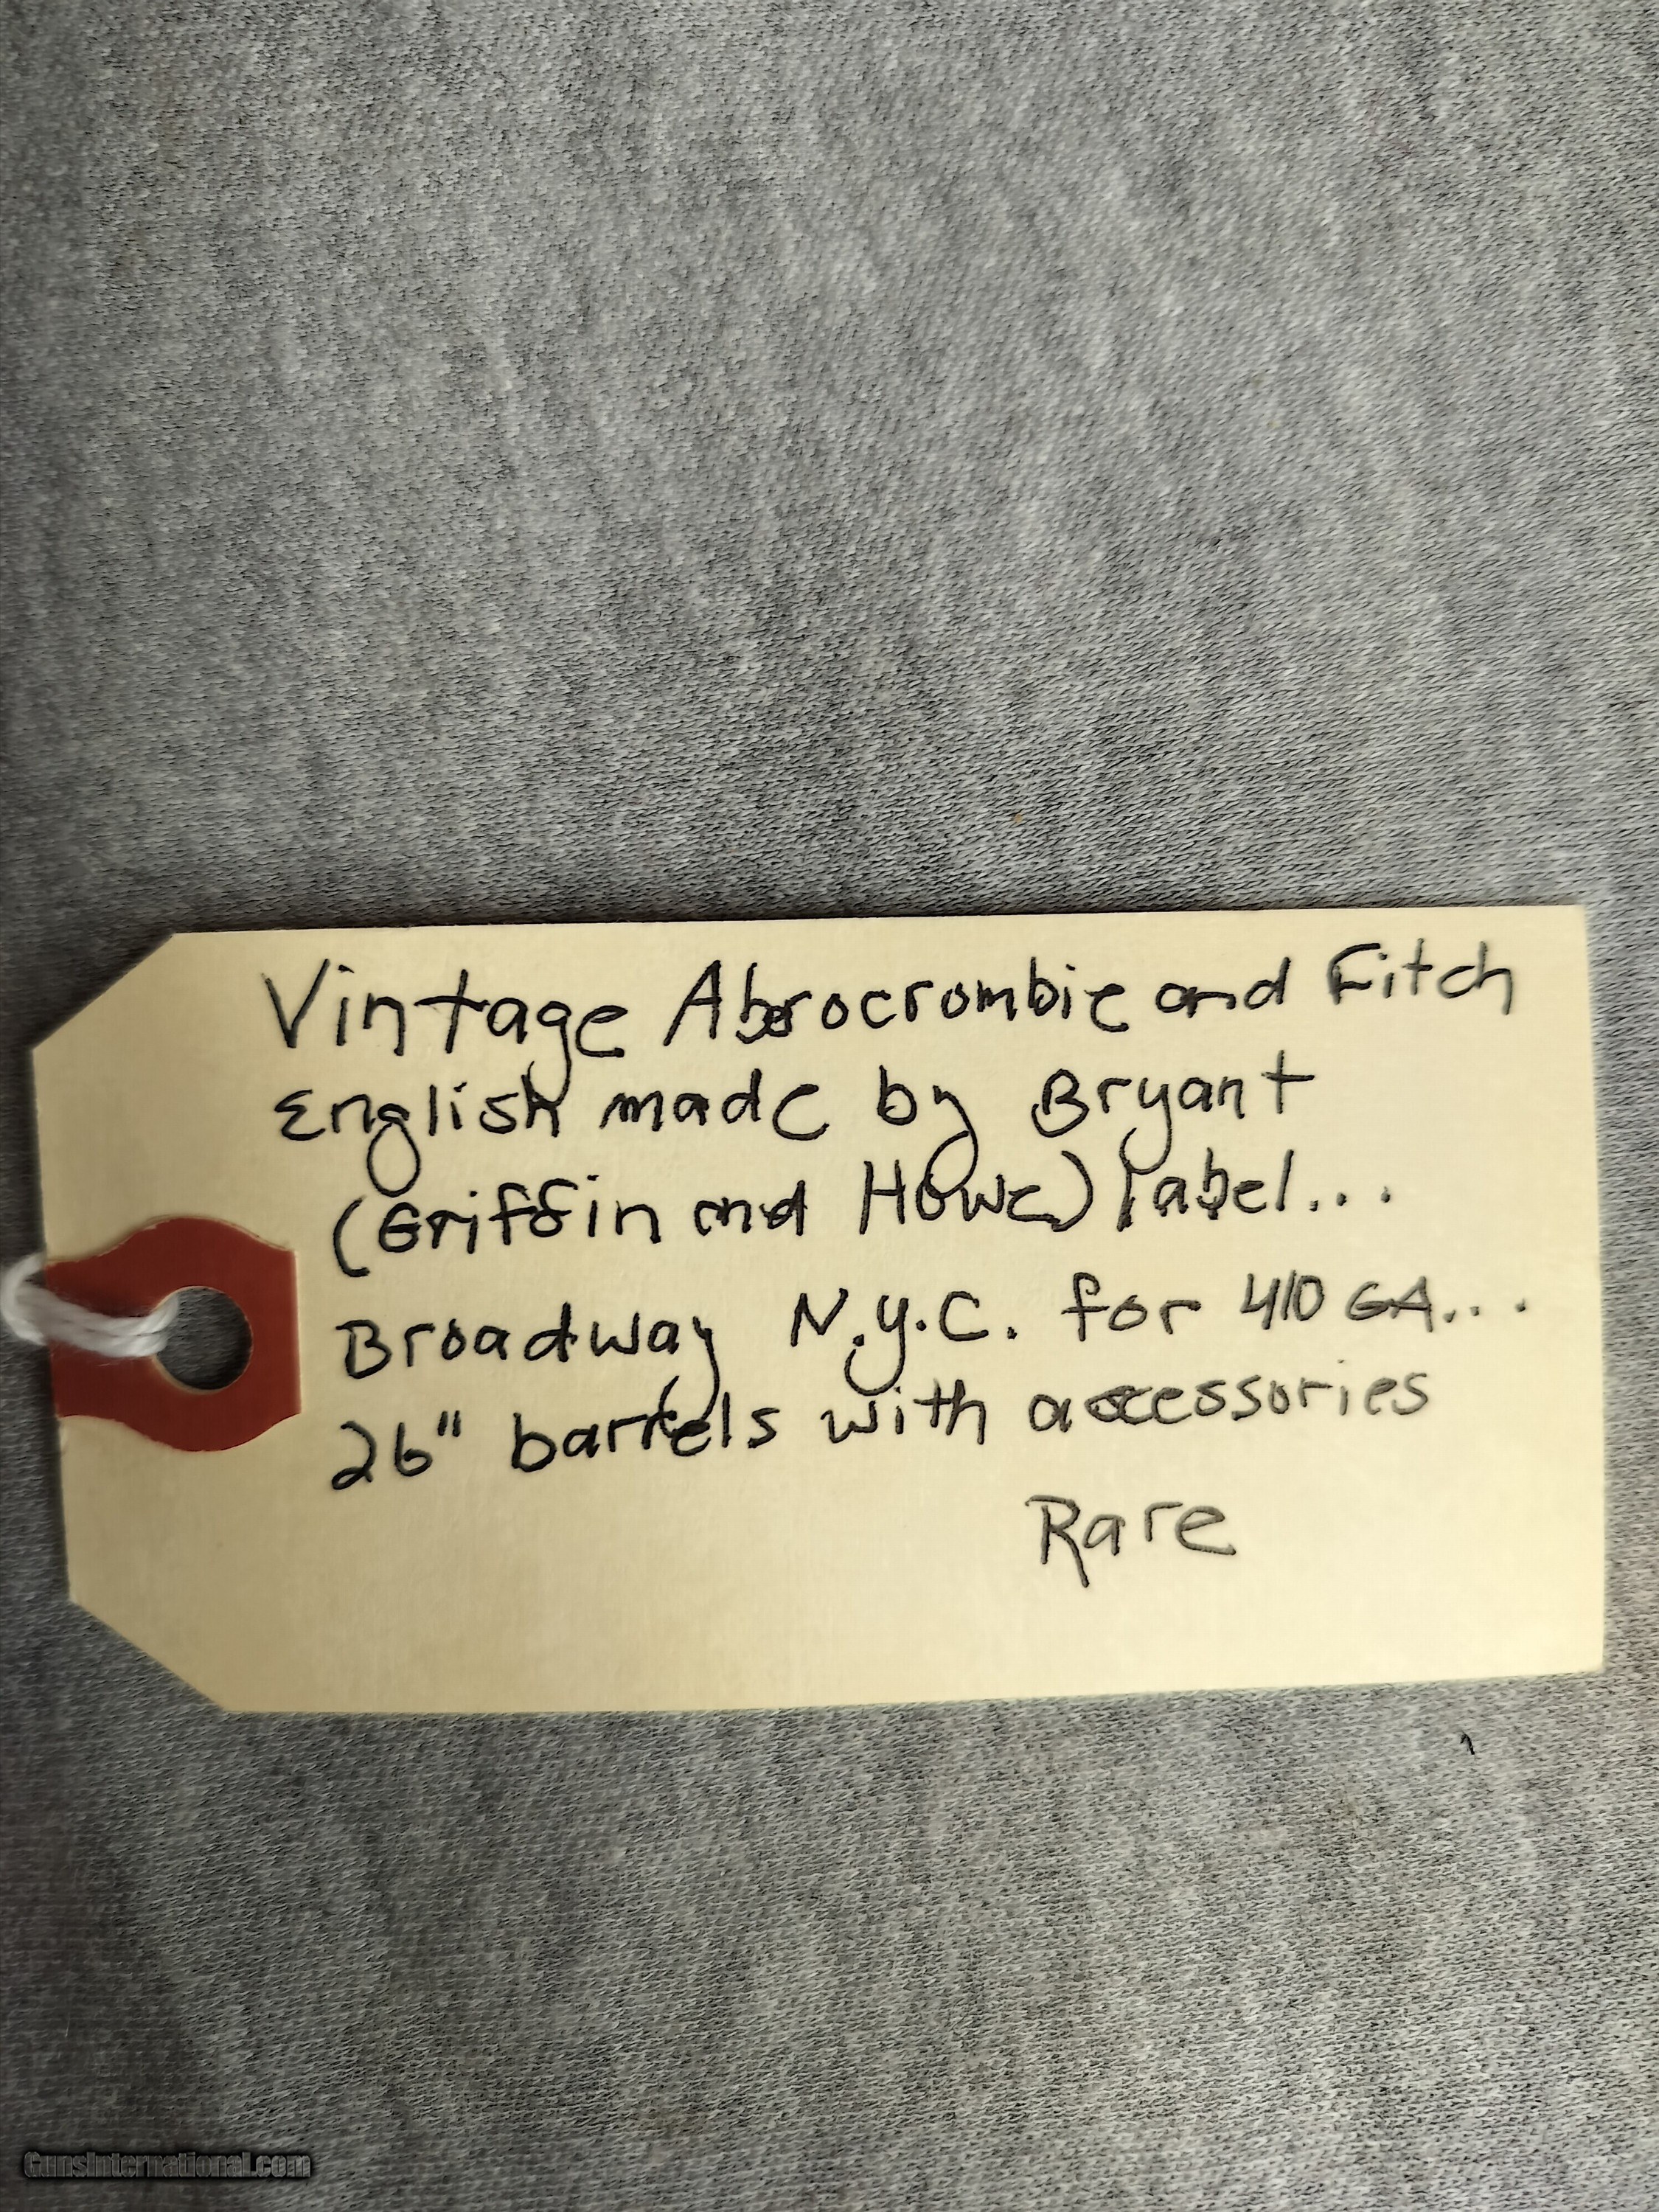 Vintage Abrocrombie and Fitch
English made by Bryant
(Griffin and Howe) label...
Broadway N.Y.C. for 410 GA...
26" barrels with accessories
Rare
GunsInternational.com